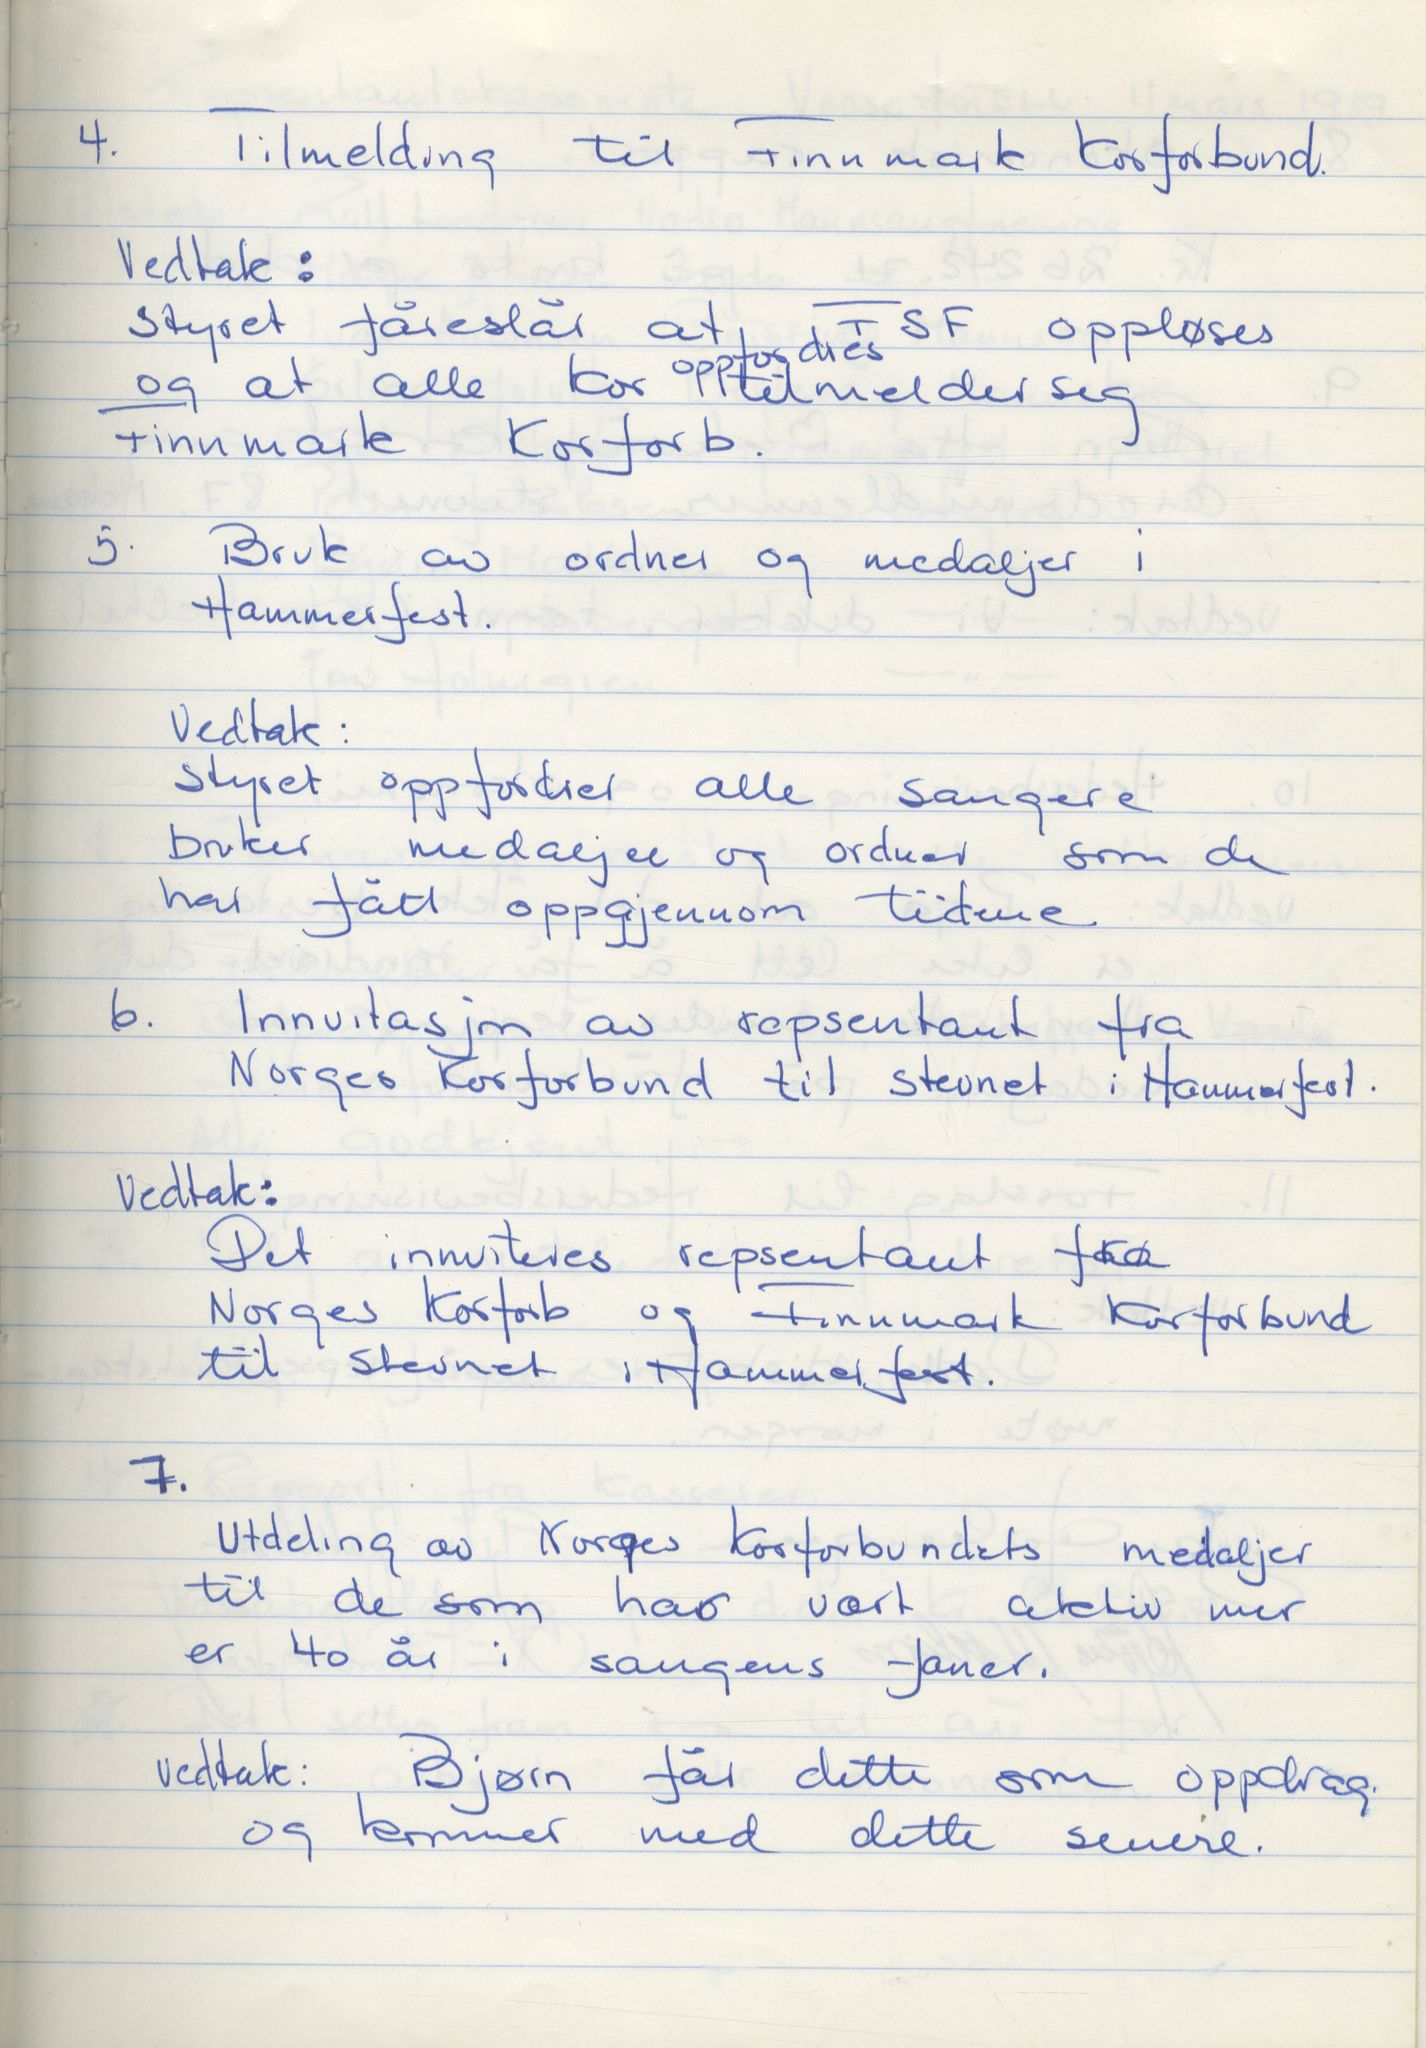 4. Tilmelding til Finnmark Korforbund.
Vedtak:
Styret fåreslår at FSF oppløses
og at alle kor oppfordres tilmelder seg
Finnmark Korforb.
5. Bruk av ordner og medaljer i
Hammerfest.
Vedtak:
Styret oppfordrer alle sangere
bruker medaljer og ordner som de
har fått oppgjennom tidene
6. Innvitasjon av repsentant fra
Norges Korforbund til stevnet i Hammerfest.
Vedtak:
Det innviteres repsentant fra
Norges Korforb og Finnmark Korforbund
til stevnet i Hammerfest.
7.
Utdeling av Norges Korforbundets medaljer
til de som har vært aktiv mer
er 40 år i sangens faner.
Vedtak: Bjørn får dette som oppdrag.
og kommer med dette senere.